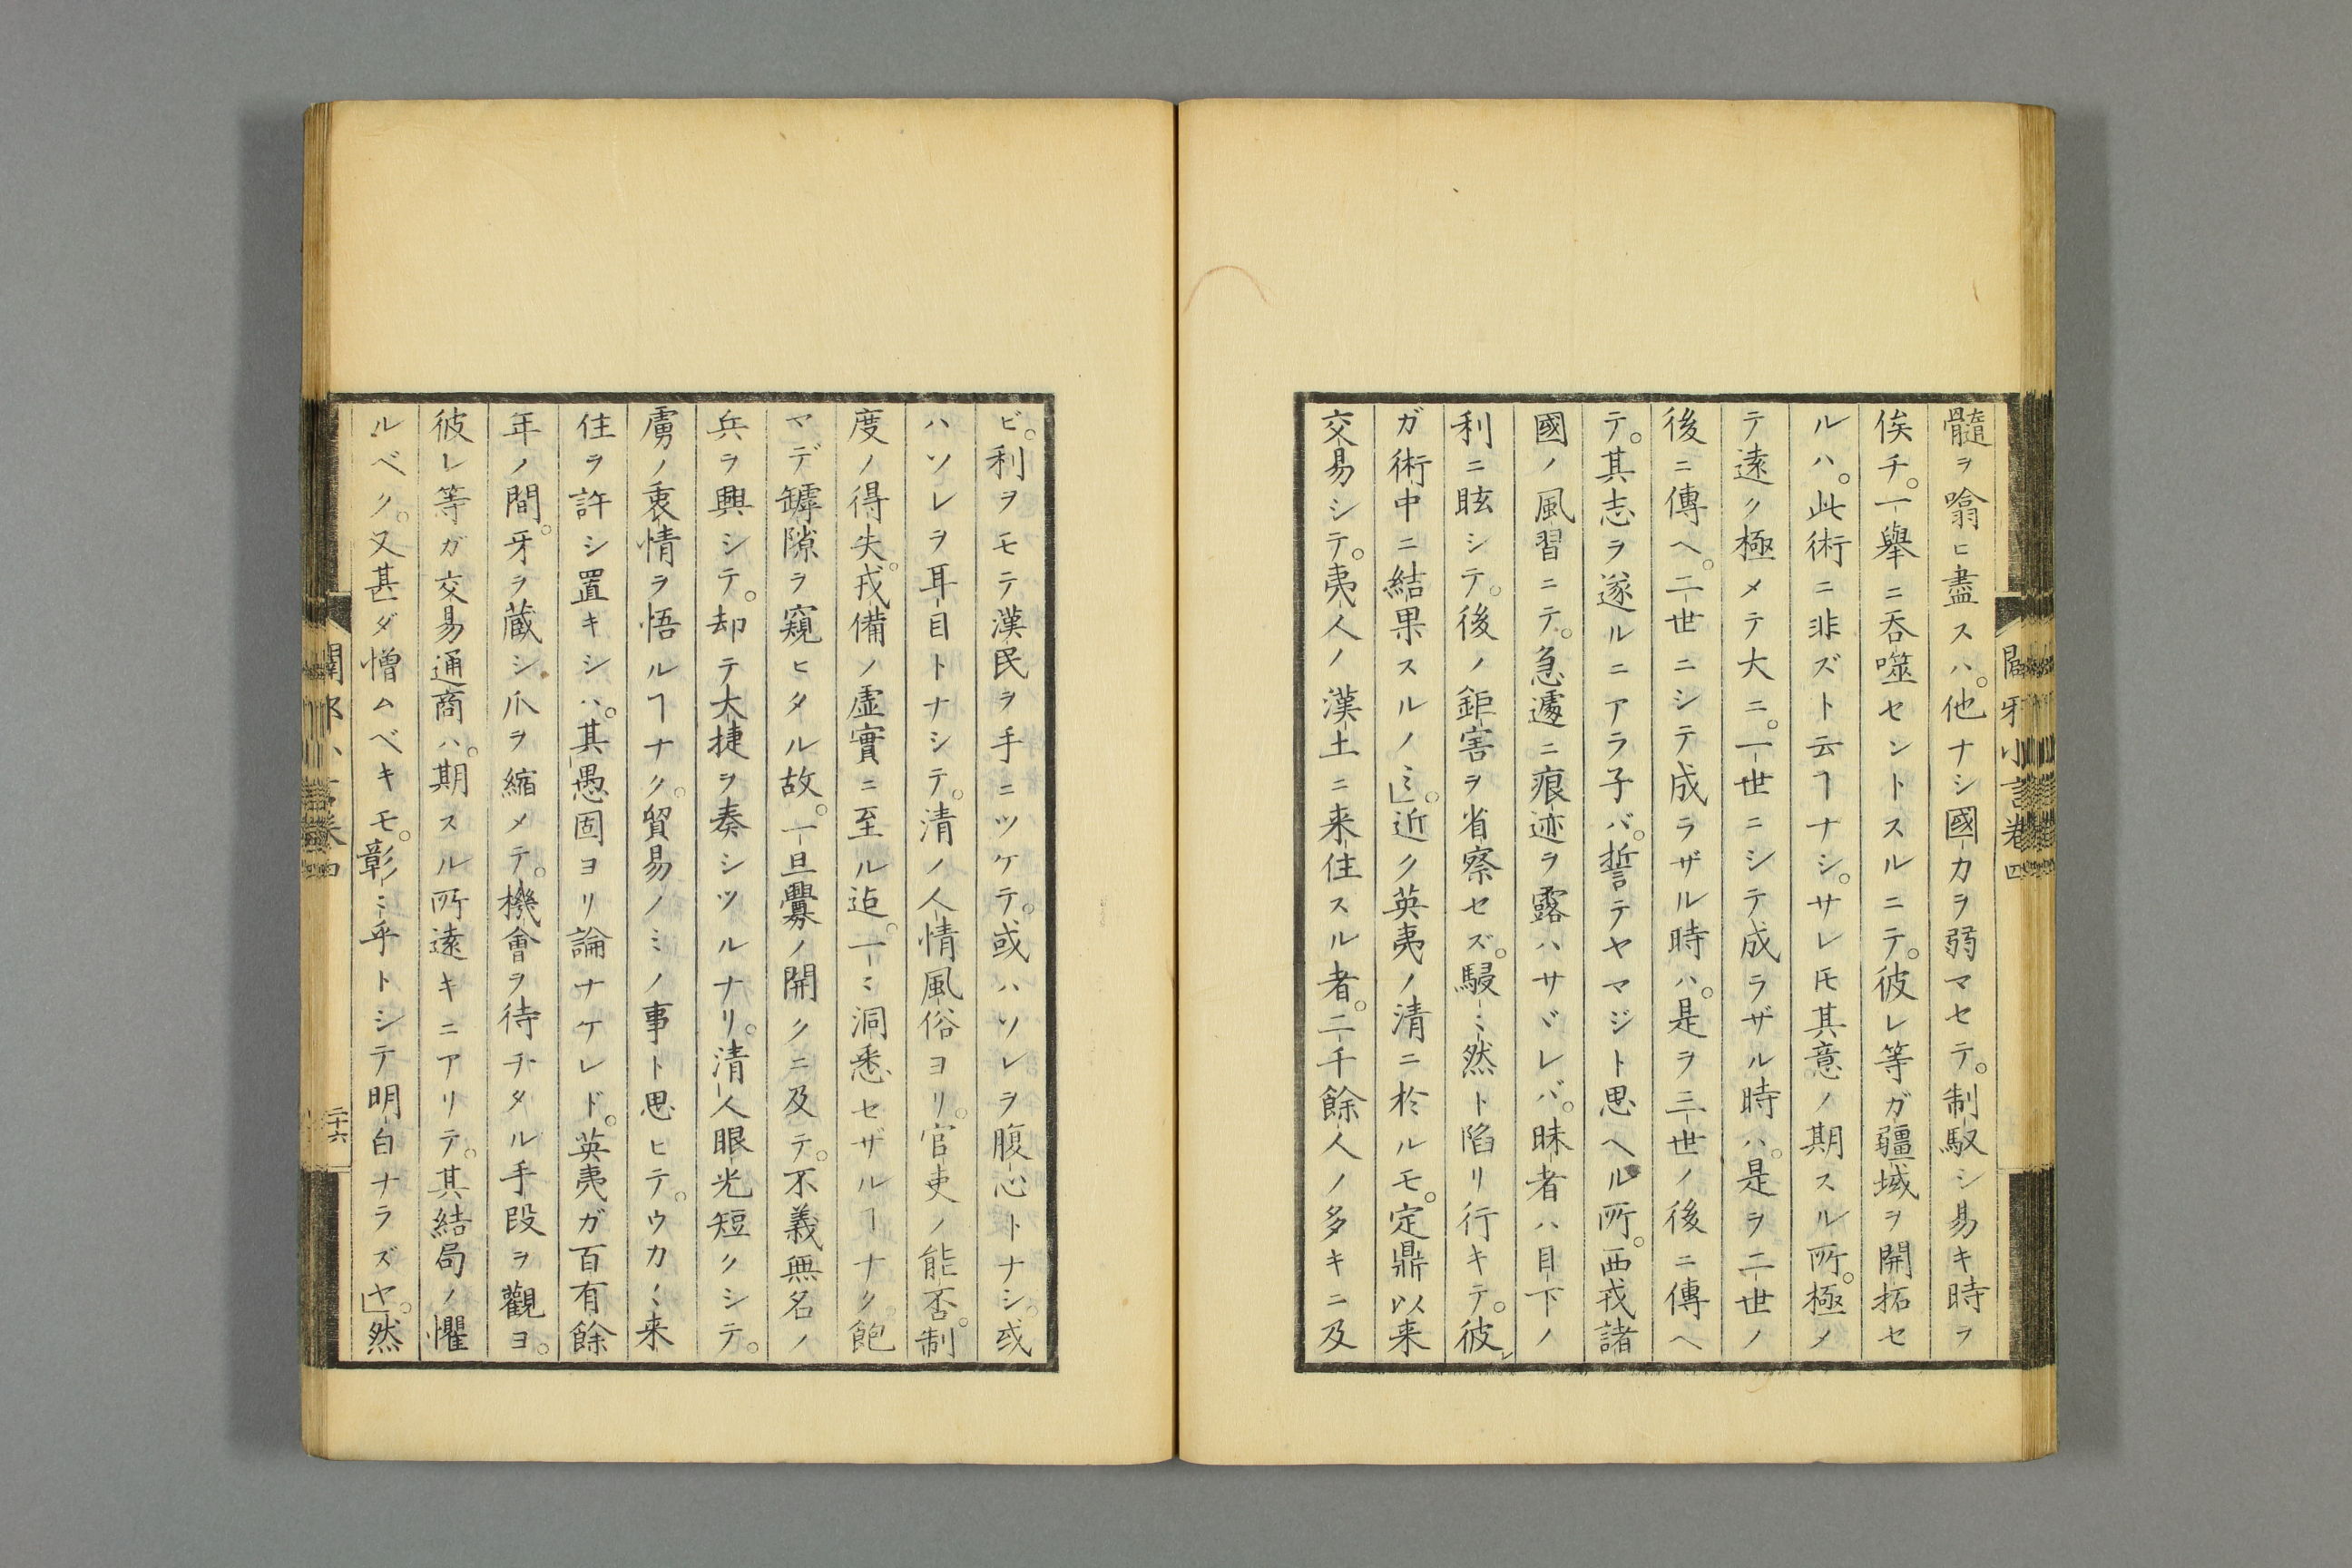 髓ヲ噏ヒ盡スハ。他ナシ國カラ弱マセテ。制馭シ易キ時ヲ
俟チ。一擧ニ呑噬セントスルニテ。彼レ等ガ疆域ヲ開拓セ
ルハ。此術ニ非ズト云ヿナシ。サレ𪜈其意ノ期スル所。極メ
テ遠ク極メテ大ニ。一世ニシテ成ラザル時ハ。是ヲ二世ノ
後ニ傳ヘ。二世ニシテ成ラザル時ハ。是ヲ三世ノ後ニ傳ヘ
テ。其志ヲ遂ルニアラ子バ。誓テヤマジト思ヘル所。西戎諸
國ノ風習ニテ。急遽ニ痕迹ヲ露ハサヾレバ。昧者ハ目下ノ
利ニ眩シテ。後ノ鉅害ヲ省察セズ。駸〻然ト陷リ行キテ。彼レ
ガ術中ニ結果スルノミ」。近ク英夷ノ清ニ於ルモ。定鼎以来
交易シテ。夷人ノ漢土ニ来住スル者。二千餘人ノ多キニ及
ビ。利ヲモテ漢民ヲ手ニツケテ。或ハソレヲ腹心トナシ。或
ハソレヲ耳目トナシテ。清ノ人情風俗ヨリ。官吏ノ能否。制
度ノ得失。戎備ノ虚實ニ至ル迠。一〻洞悉セザルヿナク。飽
マデ罅隙ヲ窺ヒタル故。一旦釁ノ開クニ及テ。不義無名ノ
兵ヲ興シテ。却テ大捷ヲ奏シツルナリ。清人眼光短クシテ。
虜ノ衷情ヲ悟ルヿナク。貿易ノミノ事ト思ヒテ。ウカ〱来
住ヲ許シ置キシハ。其愚固ヨリ論ナケレド。英夷ガ百有餘
年ノ間。牙ヲ蔵シ爪ヲ縮メテ。機會ヲ待チタル手段ヲ觀ヨ。
彼レ等ガ交易通商ハ。期スル所遠キニアリテ。其結局ノ懼
ルベク。又甚ダ憎ムベキモ。彰〻乎トシテ明白ナラズヤ」。然
二十六